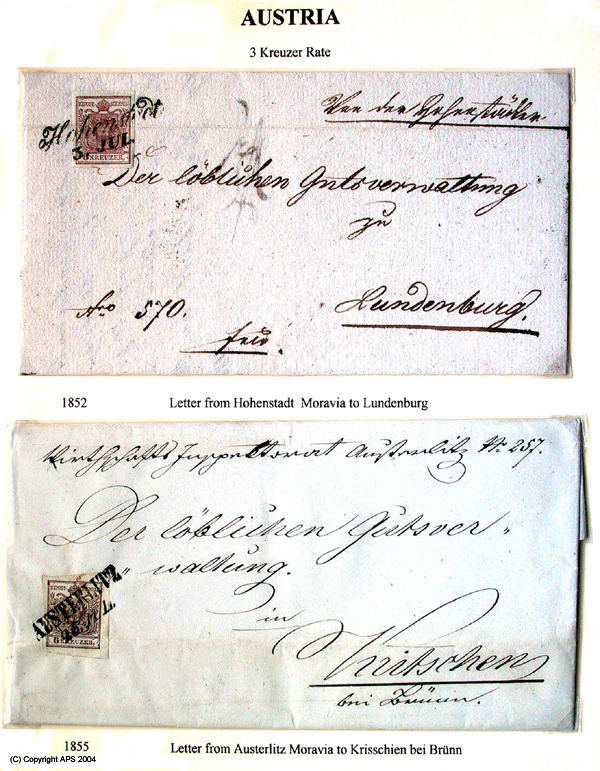 AUSTRIA
3 Kreuzer Rate
Hohenstadt
3. JUL.
6 KREUZER.
Von der Hohenstädter
Der löblichen Gutsverwaltung
zu
Lundenburg.
Nro 570.
1852 Letter from Hohenstadt Moravia to Lundenburg
Wirthschafts Inspektorat Austerlitz Nr. 257.
Der löblichen Gutsver„
„waltung.
AUSTERLITZ
6 KREUZER.
in
Kritschen
bei Brünn.
1855 Letter from Austerlitz Moravia to Krisschien bei Brünn
(C) Copyright APS 2004